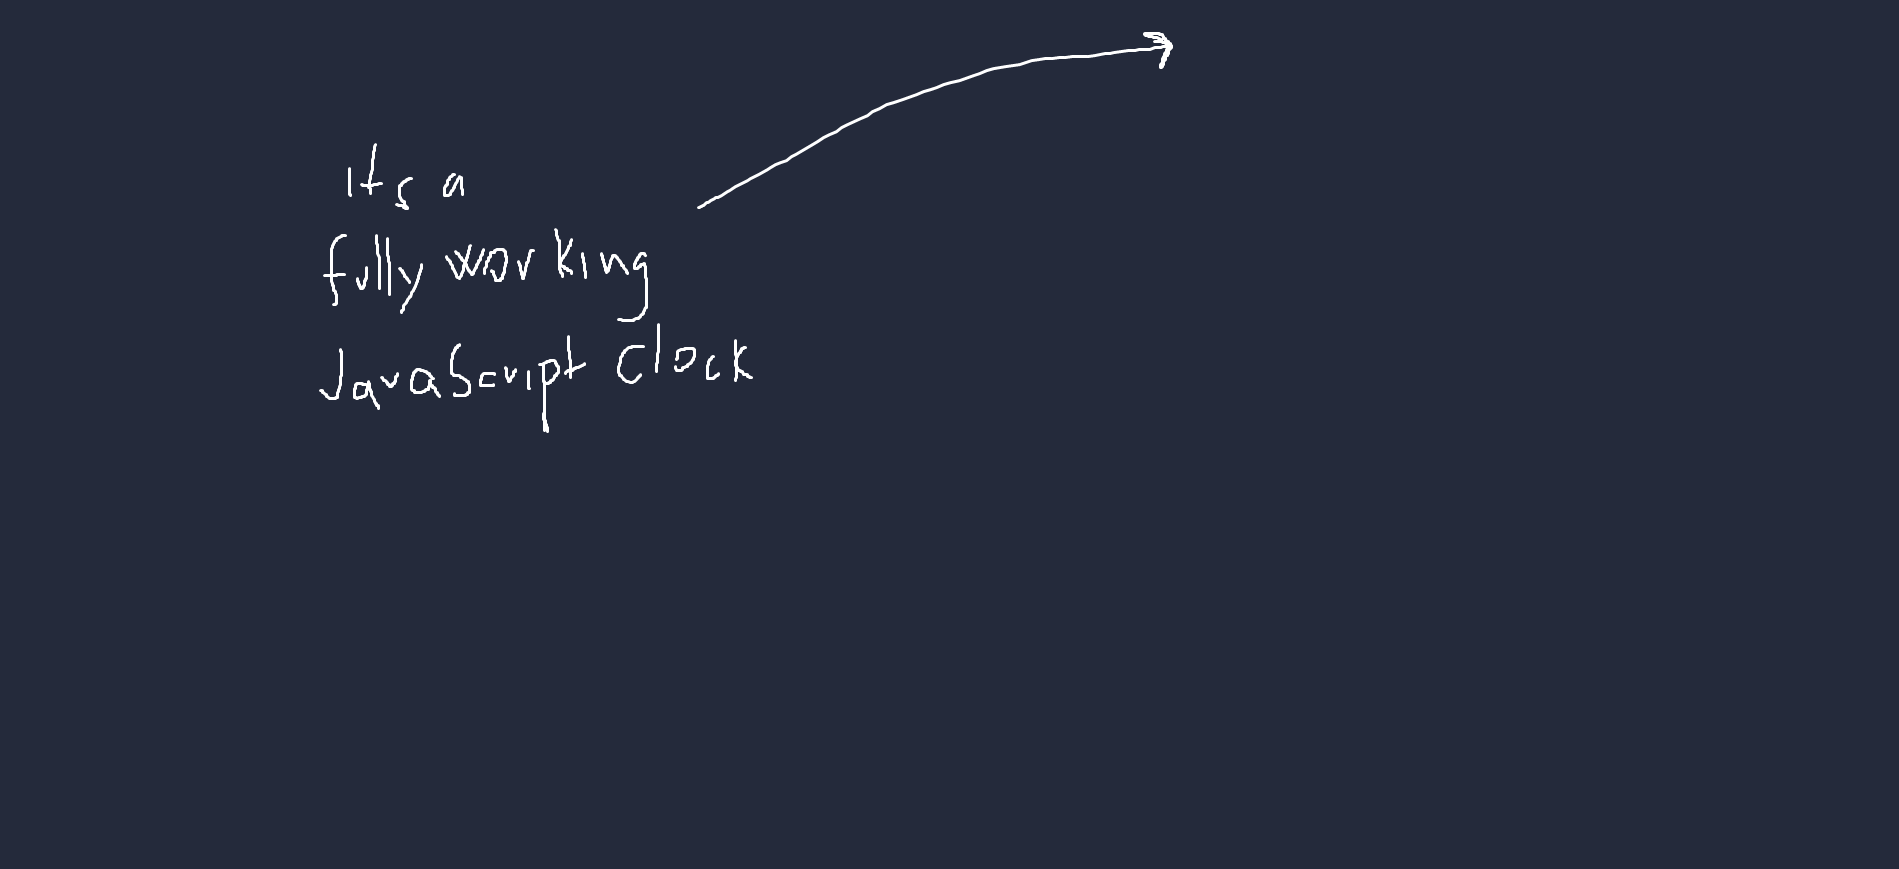 its a
fully working
JavaScript clock